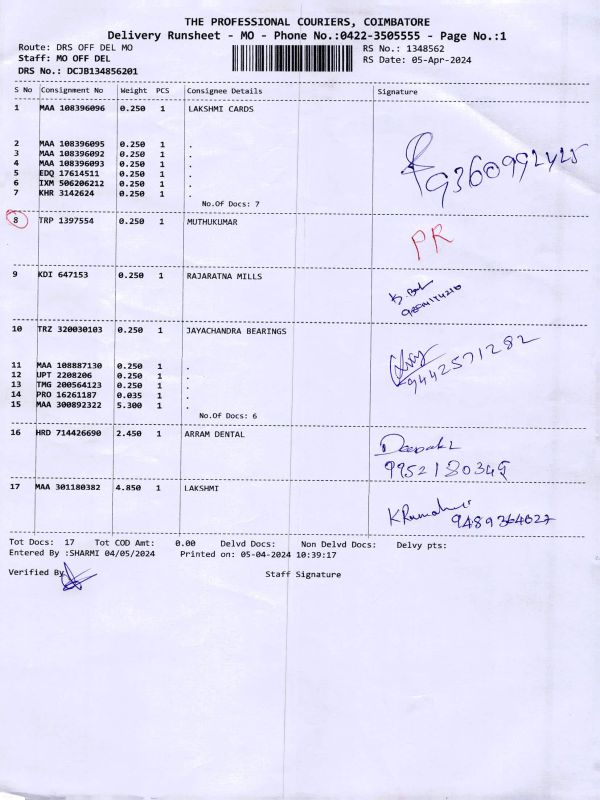 THE PROFESSIONAL COURIERS, COIMBATORE
Delivery Runsheet - MO - Phone No.:0422-3505555 - Page No.:1
Route: DRS OFF DEL MO RS No.: 1348562
Staff: MO OFF DEL RS Date: 05-Apr-2024
DRS No.: DCJB134856201
S No Consignment No Weight PCS Consignee Details Signature
1 MAA 108396096 0.250 1 LAKSHMI CARDS
2 MAA 108396095 0.250 1 .
3 MAA 108396092 0.250 1 .
4 MAA 108396093 0.250 1 .
5 EDQ 17614511 0.250 1 .
6 IXM 506206212 0.250 1 .
7 KHR 3142624 0.250 1 .
No.Of Docs: 7
8 TRP 1397554 0.250 1 MUTHUKUMAR PR
9 KDI 647153 0.250 1 RAJARATNA MILLS
10 TRZ 320030103 0.250 1 JAYACHANDRA BEARINGS
9442571282
11 MAA 108887130 0.250 1 .
12 UPT 2208206 0.250 1 .
13 TMG 200564123 0.250 1 .
14 PRO 16261187 0.035 1 .
15 MAA 300892322 5.300 1 .
No.Of Docs: 6
16 HRD 714426690 2.450 1 ARRAM DENTAL
9952180349
17 MAA 301180382 4.850 1 LAKSHMI
9489364027
Tot Docs: 17 Tot COD Amt: 0.00 Delvd Docs: Non Delvd Docs: Delvy pts:
Entered By :SHARMI 04/05/2024 Printed on: 05-04-2024 10:39:17
Verified By Staff Signature